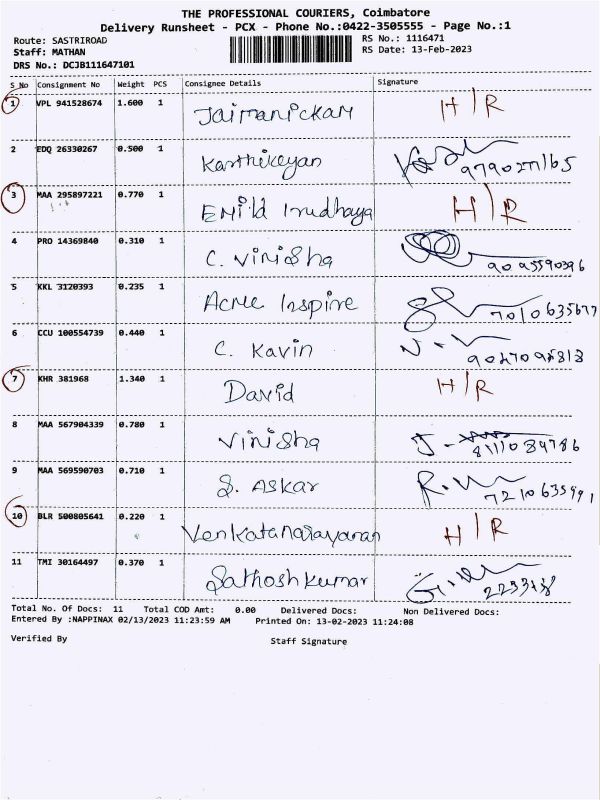 THE PROFESSIONAL COURIERS, Coimbatore
Delivery Runsheet - PCX - Phone No.:0422-3505555 - Page No.:1
Route: SASTRIROAD RS No.: 1116471
Staff: MATHAN RS Date: 13-Feb-2023
DRS No.: DCJB111647101
S_No Consignment No Weight PCS Consignee Details Signature
1 VPL 941528674 1.600 1 Jaimanickam H/R
2 EDQ 26330267 0.500 1 Karthikeyan
3 MAA 295897221 0.770 1 Irudhaya H/R
4 PRO 14369840 0.310 1 C. Vinisha
5 KKL 3120393 0.235 1 Acme Inspire
6 CCU 100554739 0.440 1 C. Kavin
7 KHR 381968 1.340 1 David H/R
8 MAA 567904339 0.780 1 Vinisha
9 MAA 569590703 0.710 1 S. Askar
10 BLR 500805641 0.220 1 Venkatanarayanan H/R
11 TMI 30164497 0.370 1 Sathosh kumar
Total No. Of Docs: 11 Total COD Amt: 0.00 Delivered Docs: Non Delivered Docs:
Entered By :NAPPINAX 02/13/2023 11:23:59 AM Printed On: 13-02-2023 11:24:08
Verified By Staff Signature